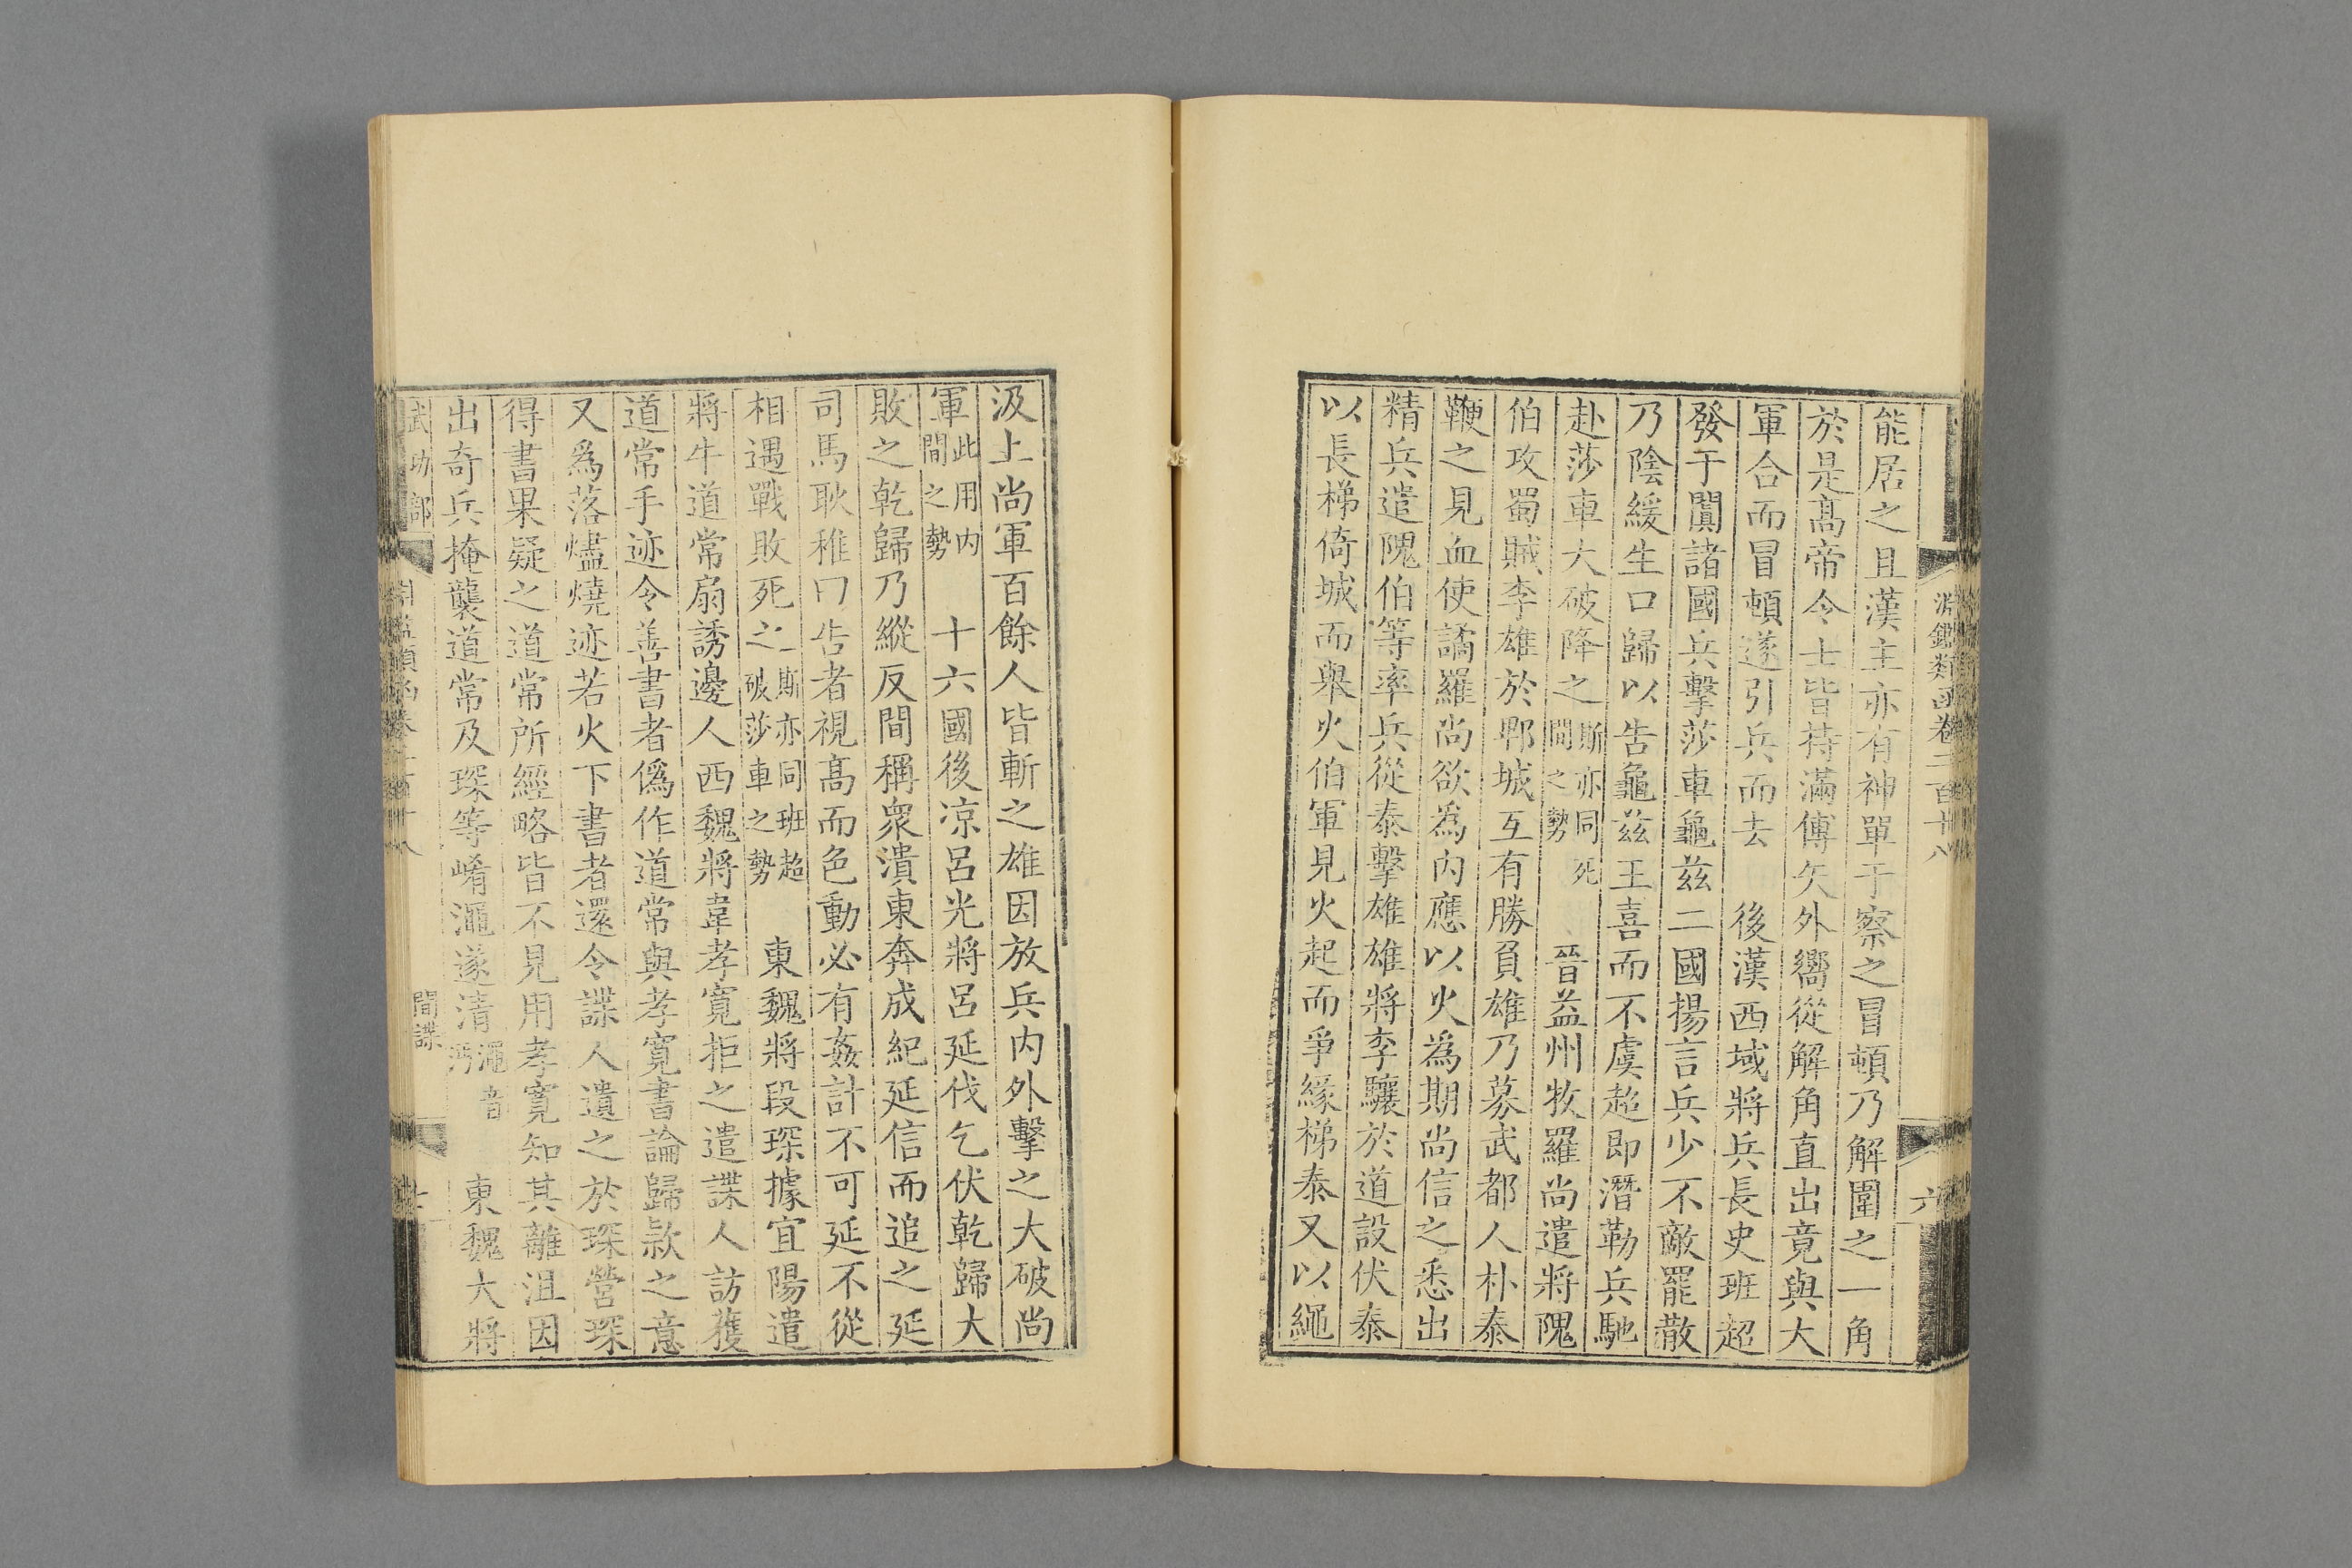 淵鑑類函卷二百十八
六
能居之且漢主亦有神單于察之冒頓乃解圍之一角
於是髙帝令士皆持滿傅矢外嚮從解角直出竟與大
軍合而冒頓遂引兵而去　後漢西域將兵長史班超
發于闐諸國兵擊莎車龜兹二國揚言兵少不敵罷散
乃陰緩生口歸以告龜兹王喜而不虞超即潛勒兵馳
赴莎車大破降之斯亦同死間之勢　晉益州牧羅尚遣將隗
伯攻蜀賊李雄於郫城互有勝負雄乃募武都人朴泰
鞭之見血使譎羅尚欲為内應以火為期尚信之悉出
精兵遣隗伯等率兵從泰擊雄雄將李驤於道設伏泰
以長梯倚城而舉火伯軍見火起而爭緣梯泰又以繩
汲上尚軍百餘人皆斬之雄因放兵内外擊之大破尚
軍此用内間之勢　十六國後凉呂光將呂延伐乞伏乾歸大
敗之乾歸乃縱反間稱衆潰東奔成紀延信而追之延
司馬耿稚曰告者視髙而色動必有姦計不可延不從
相遇戰敗死之斯亦同班超破莎車之勢　東魏將段琛據宜陽遣
將牛道常扇誘邊人西魏將韋孝寛拒之遣諜人訪獲
道常手迹令善書者僞作道常與孝寛書論歸款之意
又為落燼燒迹若火下書者還令諜人遺之於琛營琛
得書果疑之道常所經略皆不見用孝寛知其離沮因
出奇兵掩襲道常及琛等崤澠遂清澠音沔　東魏大將
武功部
間諜